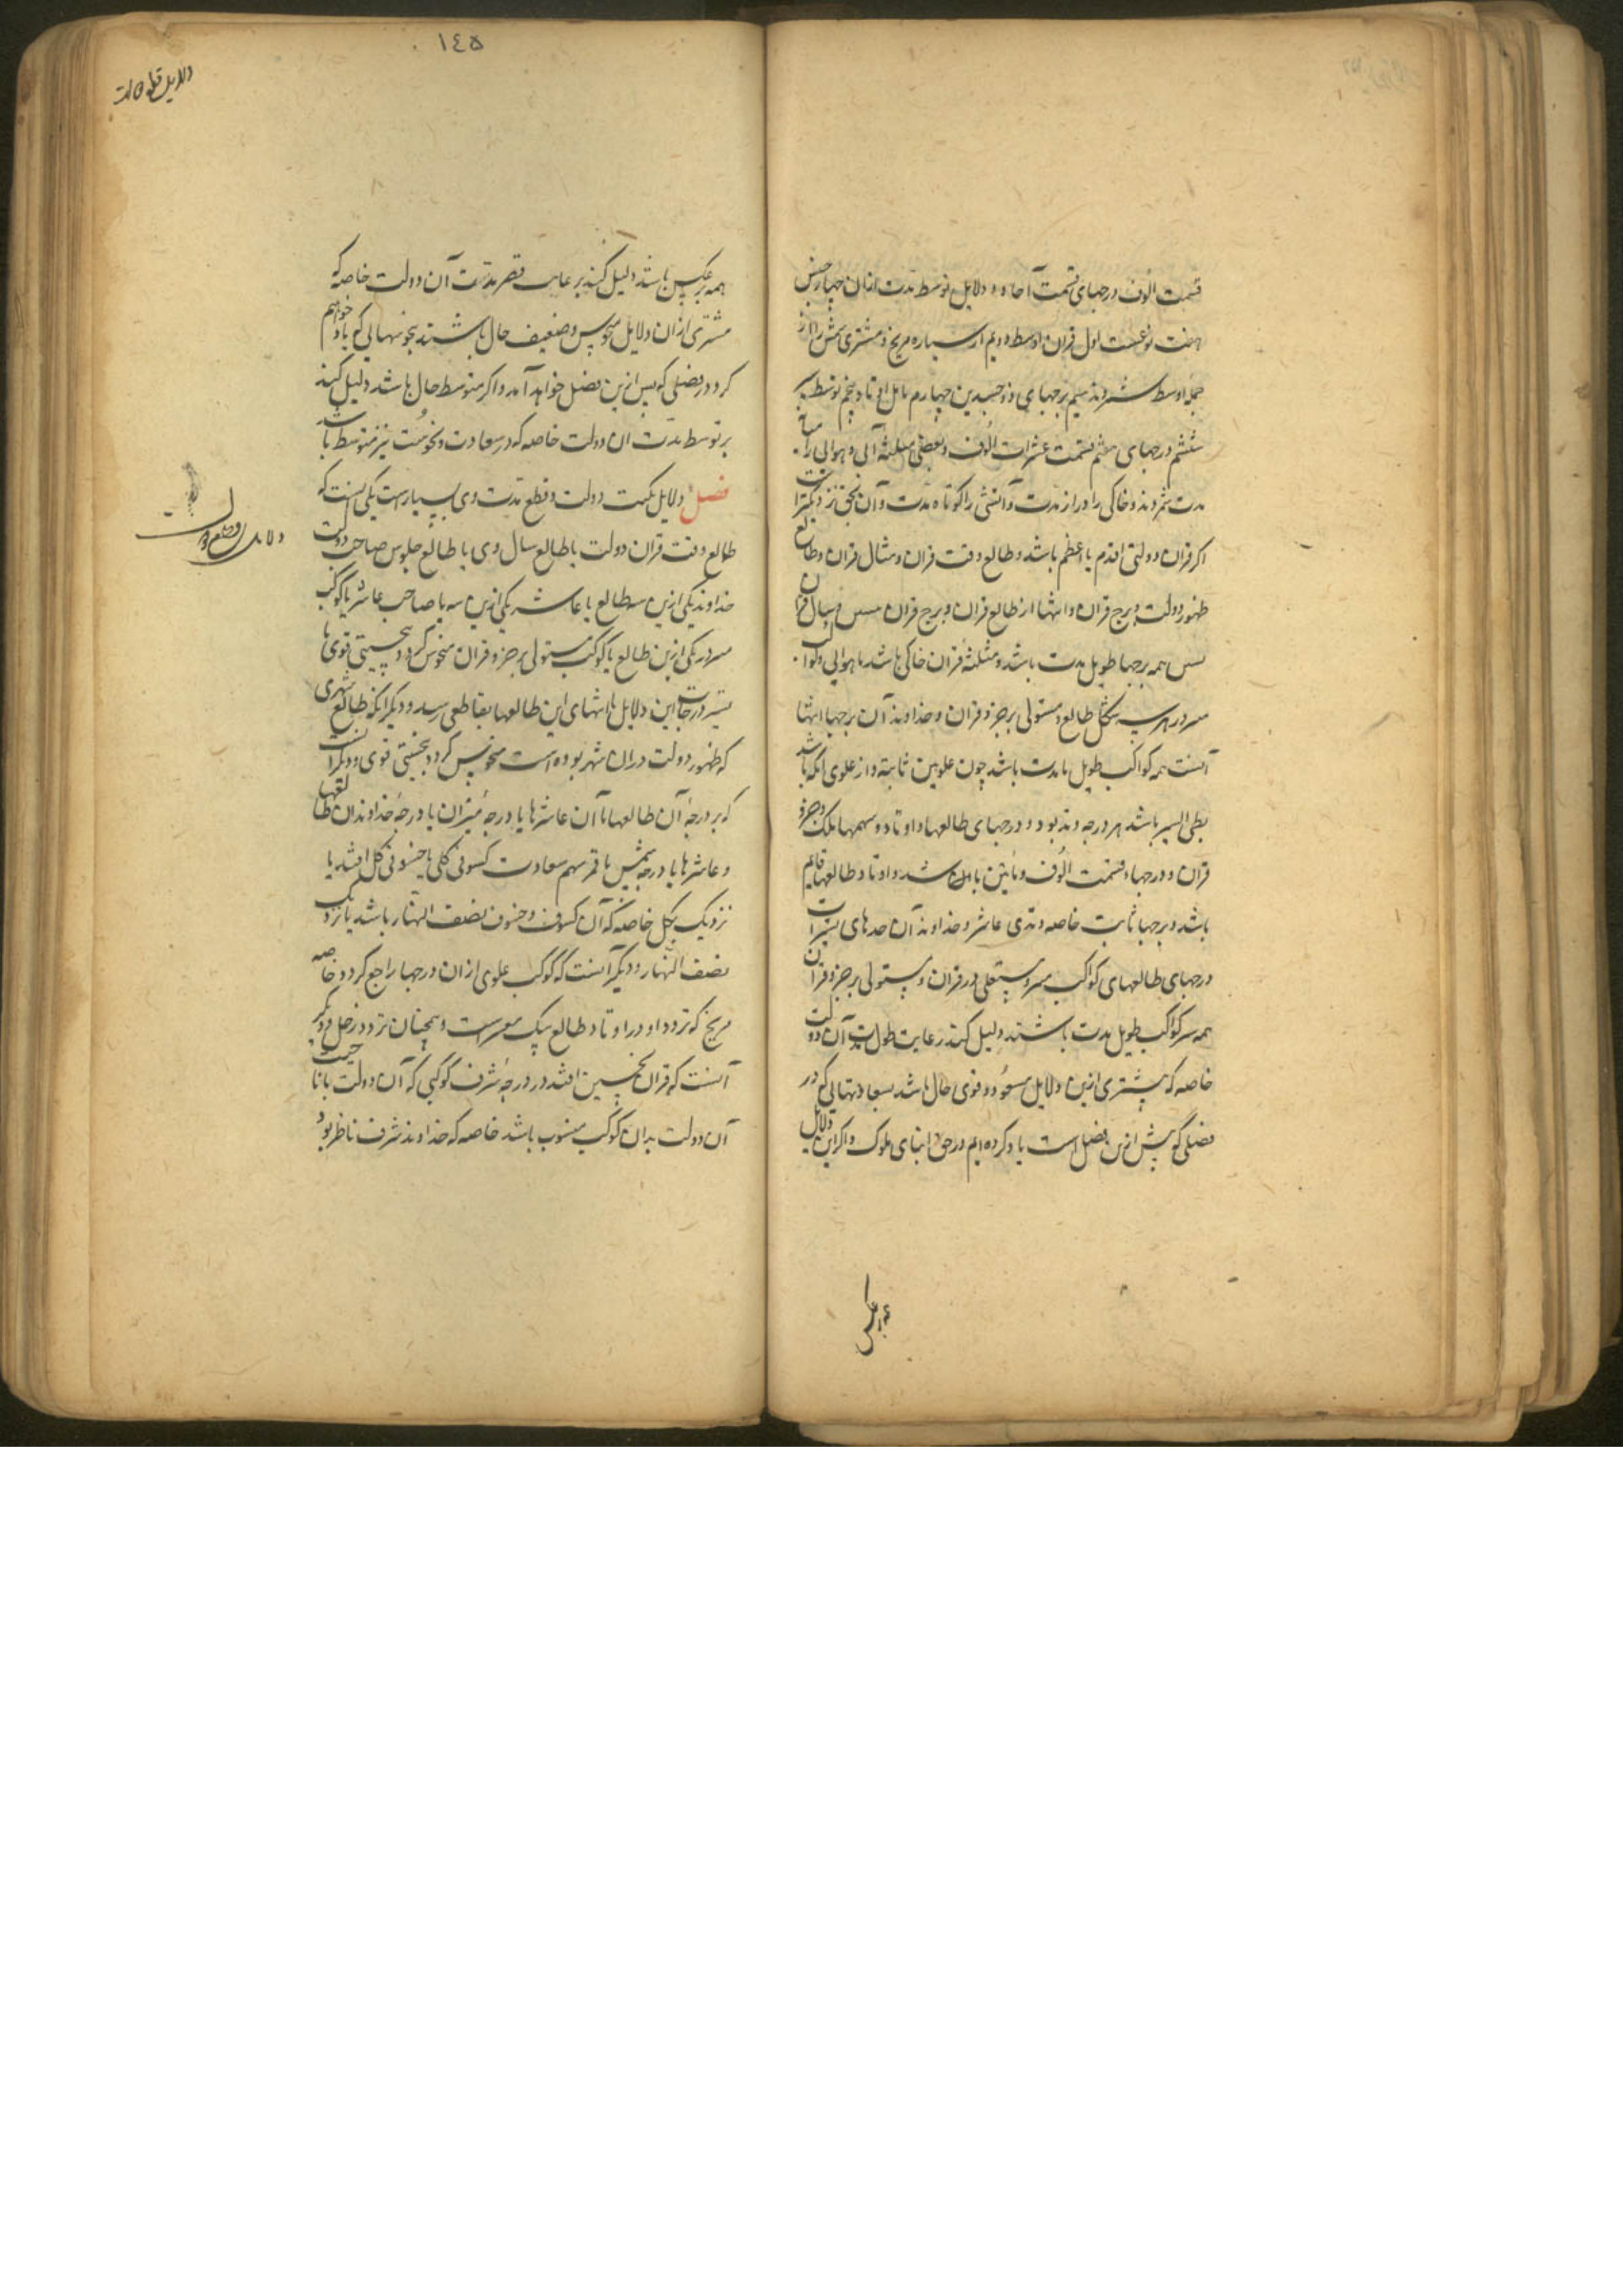 قسمت الوف درجهای قسمت آحاد و دلایل توسط مدت ازان چهار جنس
هفت نوعست اول قران اوسط دویم از سیاره مریخ و مشتری شمس را از
جمله اوسط شمردند سیم برجهای ذو جسدین چهارم مایل اوتاد پنجم توسط
ششم درجهای هشتم قسمت عشرات الوف و بعضی مثلثه آبی و هوایی را
مدت شمردند و خاکی را دراز مدت و آتشی را کوتاه مدت و آن بحق نزدیکترا
ست
اکر قران دولتی اقدم یا اعظم باشد و طالع وقت قران و مثال قران و طالع
ظهور دولت و برج قران و انتها از طالع قران و برج قران سال قران
همه برجها طویل مدت باشد و مثلثه قران خاکی باشد یا هوایی
طالع و مستولی بر جزو قران و خداوند آن برجها انتها
آنست همه کواکب طویل مدت باشد چون علویین ثابته و از علوی آنکه باشد
بطی السیر باشد هر درجه و درجهای طالعها و اوتاد و سهمها ملک و جزو
قران و درجها و قسمت الوف و مئین باشد و اوتاد طالعها قایم
باشد و برجها ثابت خاصه وتدی عاشر و خداوند آن حدهای نیرات
درجهای طالعهای کواکب مستعلی در قران و مستولی بر جزو قران
همه کواکب طویل مدت باشند دلیل کند بر غایت طول مدت آن دولت
خاصه که مشتری ازین دلایل مسعود و قوی حال باشد بسعادتهایی که در
فصلی که پیش ازین فصل است یاد کرده ایم در حق ابنای ملوک و اکر این دلایل
همه بر عکس
١٤٥
همه بر عکس باشد دلیل کند بر غایت قصر مدت آن دولت خاصه که
مشتری ازان دلایل منحوس و ضعیف حال باشند بنحوستهایی که یاد خواهیم
کرد در فصلی که پس ازین فصل خواهد آمد و اکر متوسط حال باشد دلیل کند
بر توسط مدت ان دولت خاصه که در سعادت و نحوست نیز متوسط باشد
فصل دلایل نکبت دولت و قطع مدت وی بسیارست یکی آنست که
طالع وقت قران دولت یا طالع سال وی یا طالع جلوس صاحب دولت
خداوند یکی ازین سه طالع یا عاشر یکی ازین سه یا صاحب عاشر یا کوکب
در یکی ازین طالع یا کوکب مستولی بر جزو قران منحوس کردد بنحوستی قوی یا
تسییر درجات این دلایل یا انتهای این طالعها بقاطعی رسد و دیکر آنکه طالع شهری
که ظهور دولت دران شهر بوده است منحوس کردد بنحوستی قوی و دیکر آنست
که بر درجه آن طالعها یا آن عاشرها یا درجه نیرین یا درجه خداوندان طالعها
و عاشرها یا درجه شمس یا قمر سهم سعادت کسوفی کلی یا خسوفی کلی افتد یا
نزدیک بکل خاصه که آن کسوف و خسوف نصف النهار باشد یا نزدیک
نصف النهار و دیکر آنست که کوکب علوی ازان درجها راجع کردد خاصه
مریخ که تردد او در اوتاد طالع مضرست و همچنان تردد زحل و دیکر
آنست که قران نحسین افتد در درجه شرف کوکبی که آن دولت یا ناحیت
آن دولت بدان کوکب منسوب باشد خاصه که خداوند شرف ناظر بود
دلایل قطع دولت